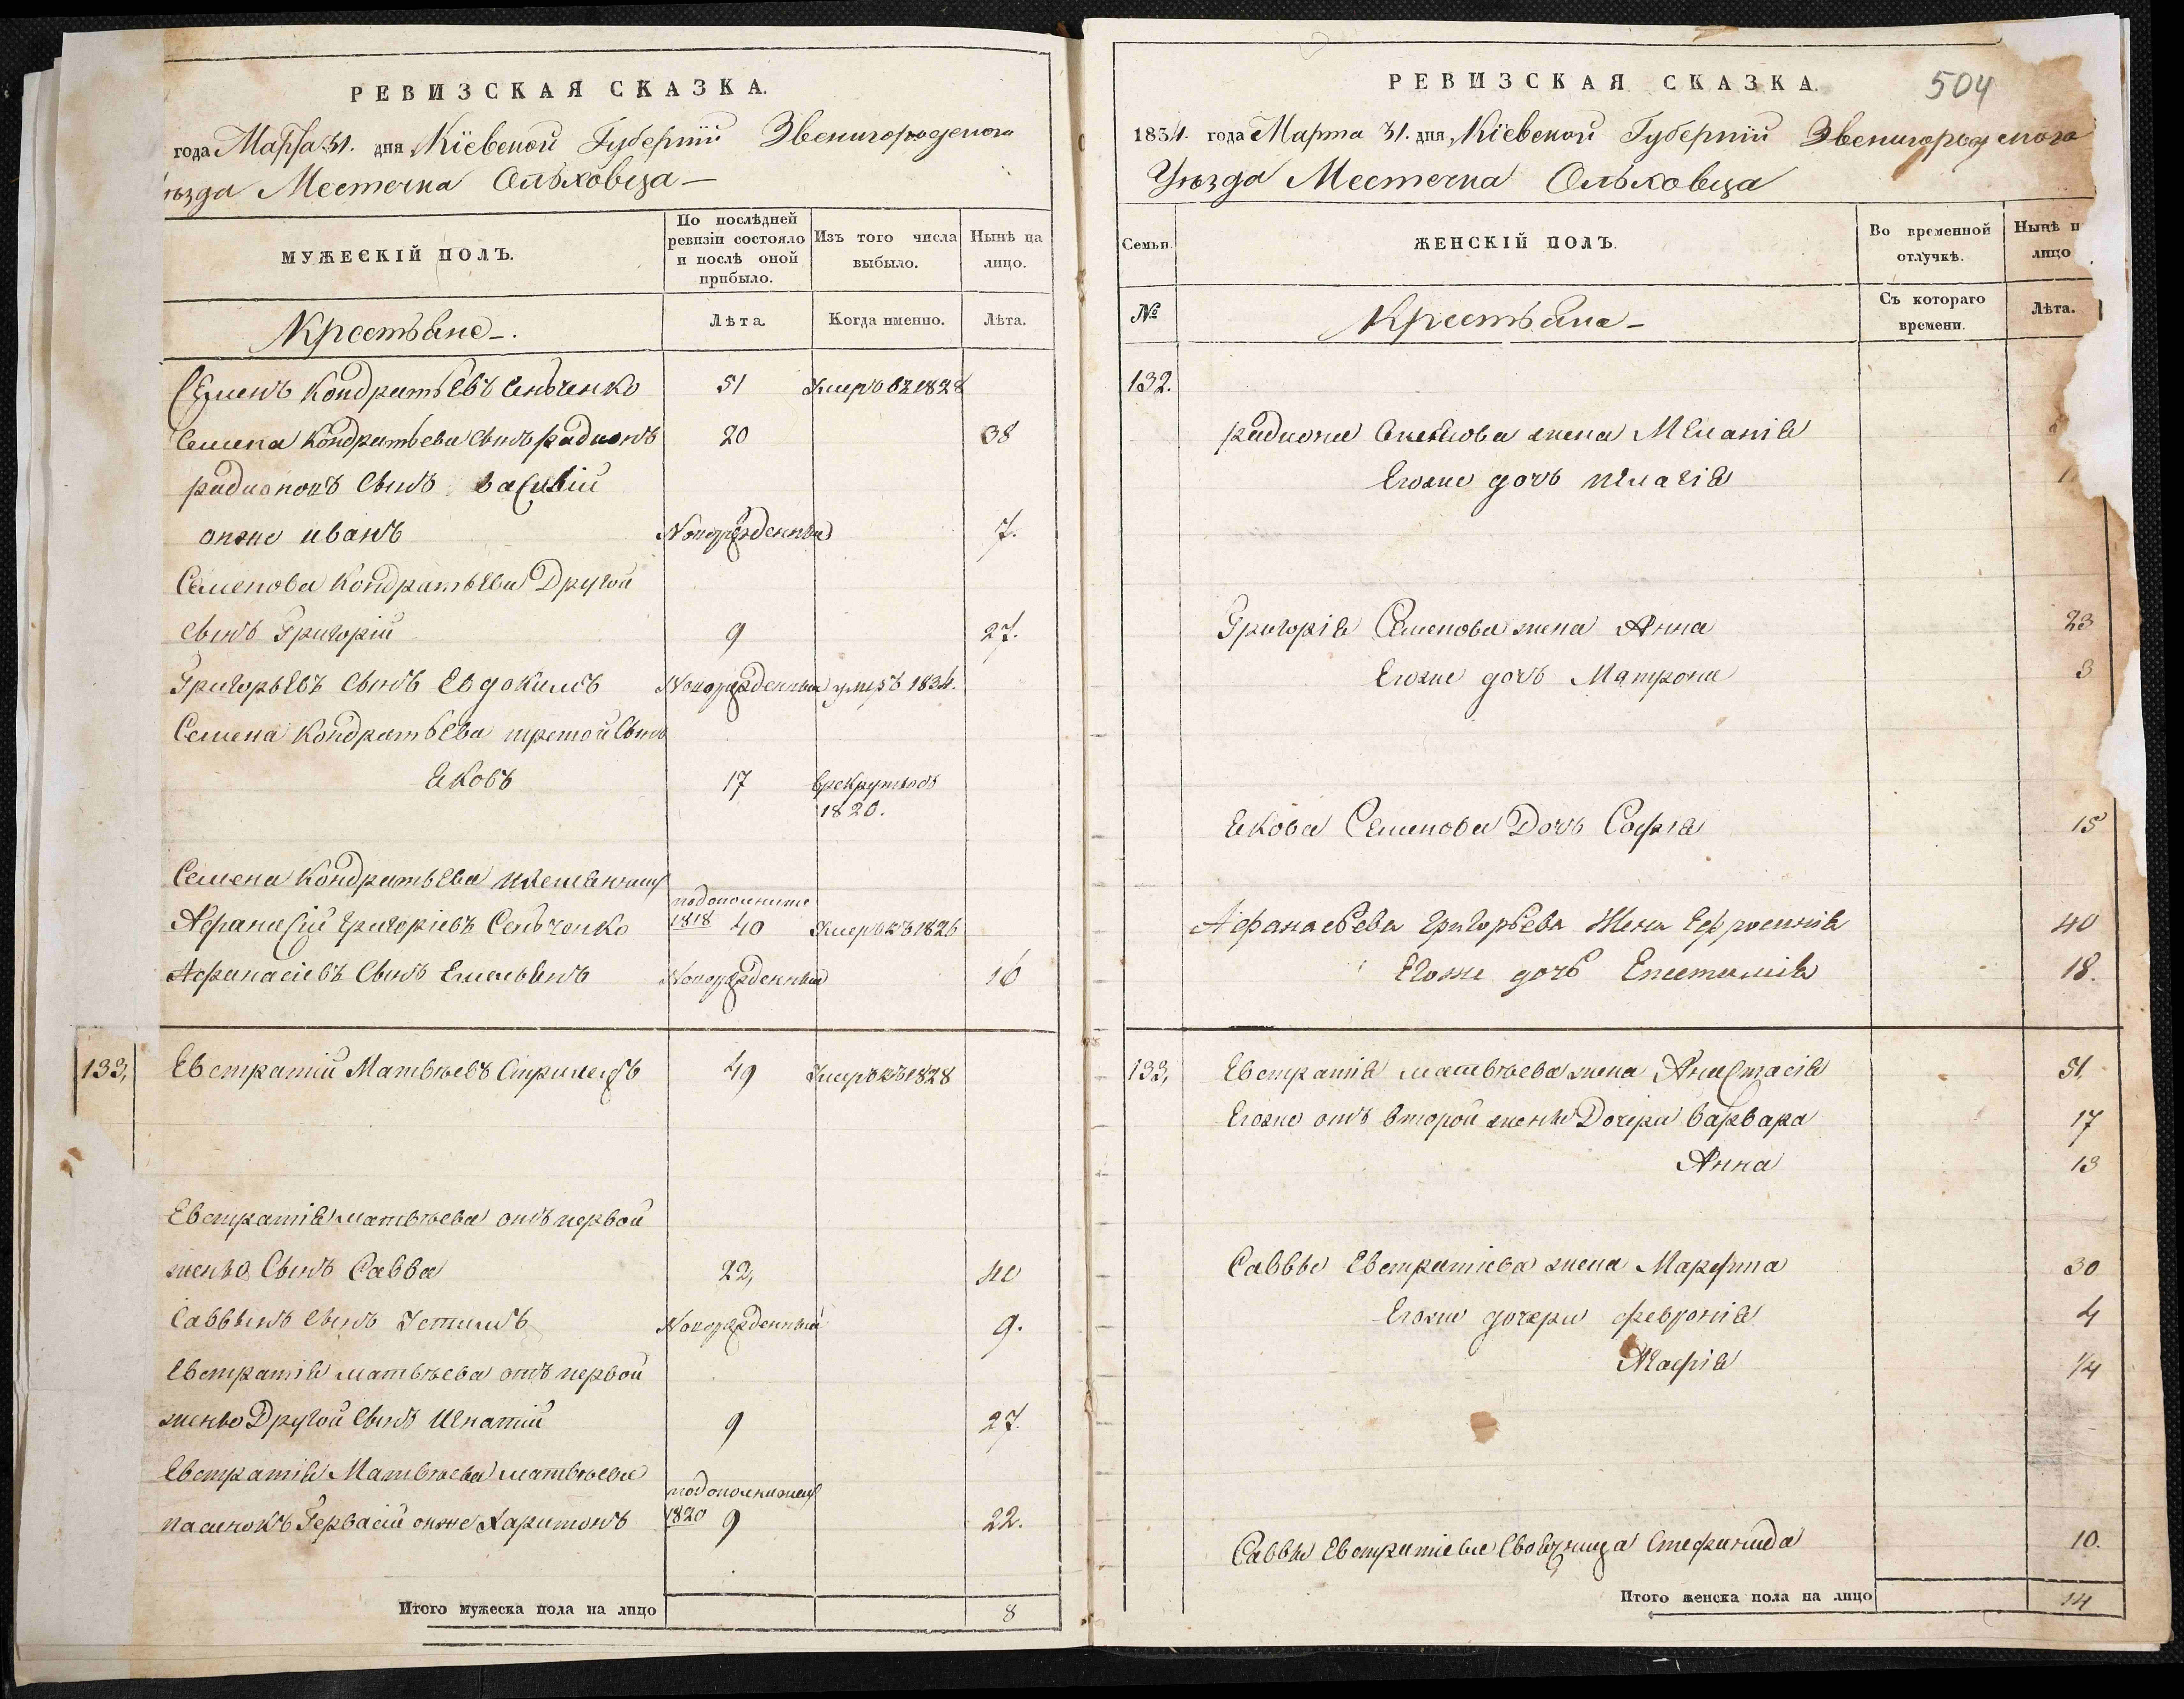 РЕВИЗСКАЯ СКАЗКА.
года Марта 31. дня Кіевской Губерніи Звенигородского
Местечка Ольховца —
МУЖЕСКІЙ ПОЛЪ.
По послѣдней ревизіи состояло и послѣ оной прибыло.
Изъ того числа выбыло.
Нынѣ на лицо.
Крестьяне —.
Лѣта.
Когда именно.
Лѣта.
Семенъ Кондратьевъ Сенченко 51 Умеръ въ 1828
Семена Кондратьева Сынъ радионъ 20 38
радионовъ Сынъ василій
онже иванъ Новорожденный 7.
Семенова Кондратьева Другой
Сынъ Григорій 9 27.
Григорьевъ Сынъ Евдокимъ Новорожденный умеръ 1834.
Семена Кондратьева третой Сынъ
Яковъ 17 врекрутахъ
1820.
Семена Кондратьева
1818 40 Афанасій Григоріевъ Сенченко Умеръ въ 1826
Афанасіевъ Сынъ Емельянъ Новорожденный 16
133, Евстратій Матвѣевъ 49 Умеръ въ 1828
Евстратія матвѣева отъ первой
жены Сынъ Савва 22, 40
Саввынъ Сынъ Устимъ Новорожденный 9.
Евстратія матвѣева отъ первой
жены Другой Сынъ Игнатій 9 27.
Евстратія Матвѣева
пасынокъ Гервасій онже Харитонъ 1820 9 22.
Итого мужеска пола на лицо 8
РЕВИЗСКАЯ СКАЗКА.
504
1834. года Марта 31. дня Кіевской Губерніи Звенигородского
Уѣзда Местечка Ольховца
Семьи.
ЖЕНСКІЙ ПОЛЪ.
Во временной отлучкѣ.
Нынѣ
лицо
№
Крестьяне —
Съ котораго времени.
Лѣта.
132.
радиона Семенова жена Меланія
Егоже дочь пелагія
Григорія Семенова жена Анна 23
Егоже дочь Матрона 3
Якова Семенова Дочь Софія 15
Афанасьева Григорьева Жена Ефросинія 40
Егоже дочь Епистимія 18.
133, Евстратія матвѣева жена Анастасія 51.
Егоже отъ второй жены Дочери варвара 17
Анна 13
Саввы Евстратіева жена Марфина 30
Егоже дочери февронія 4
Агафія 1/4
Саввы Евстратіева Своячница Стефанида 10.
Итого женска пола на лицо 14